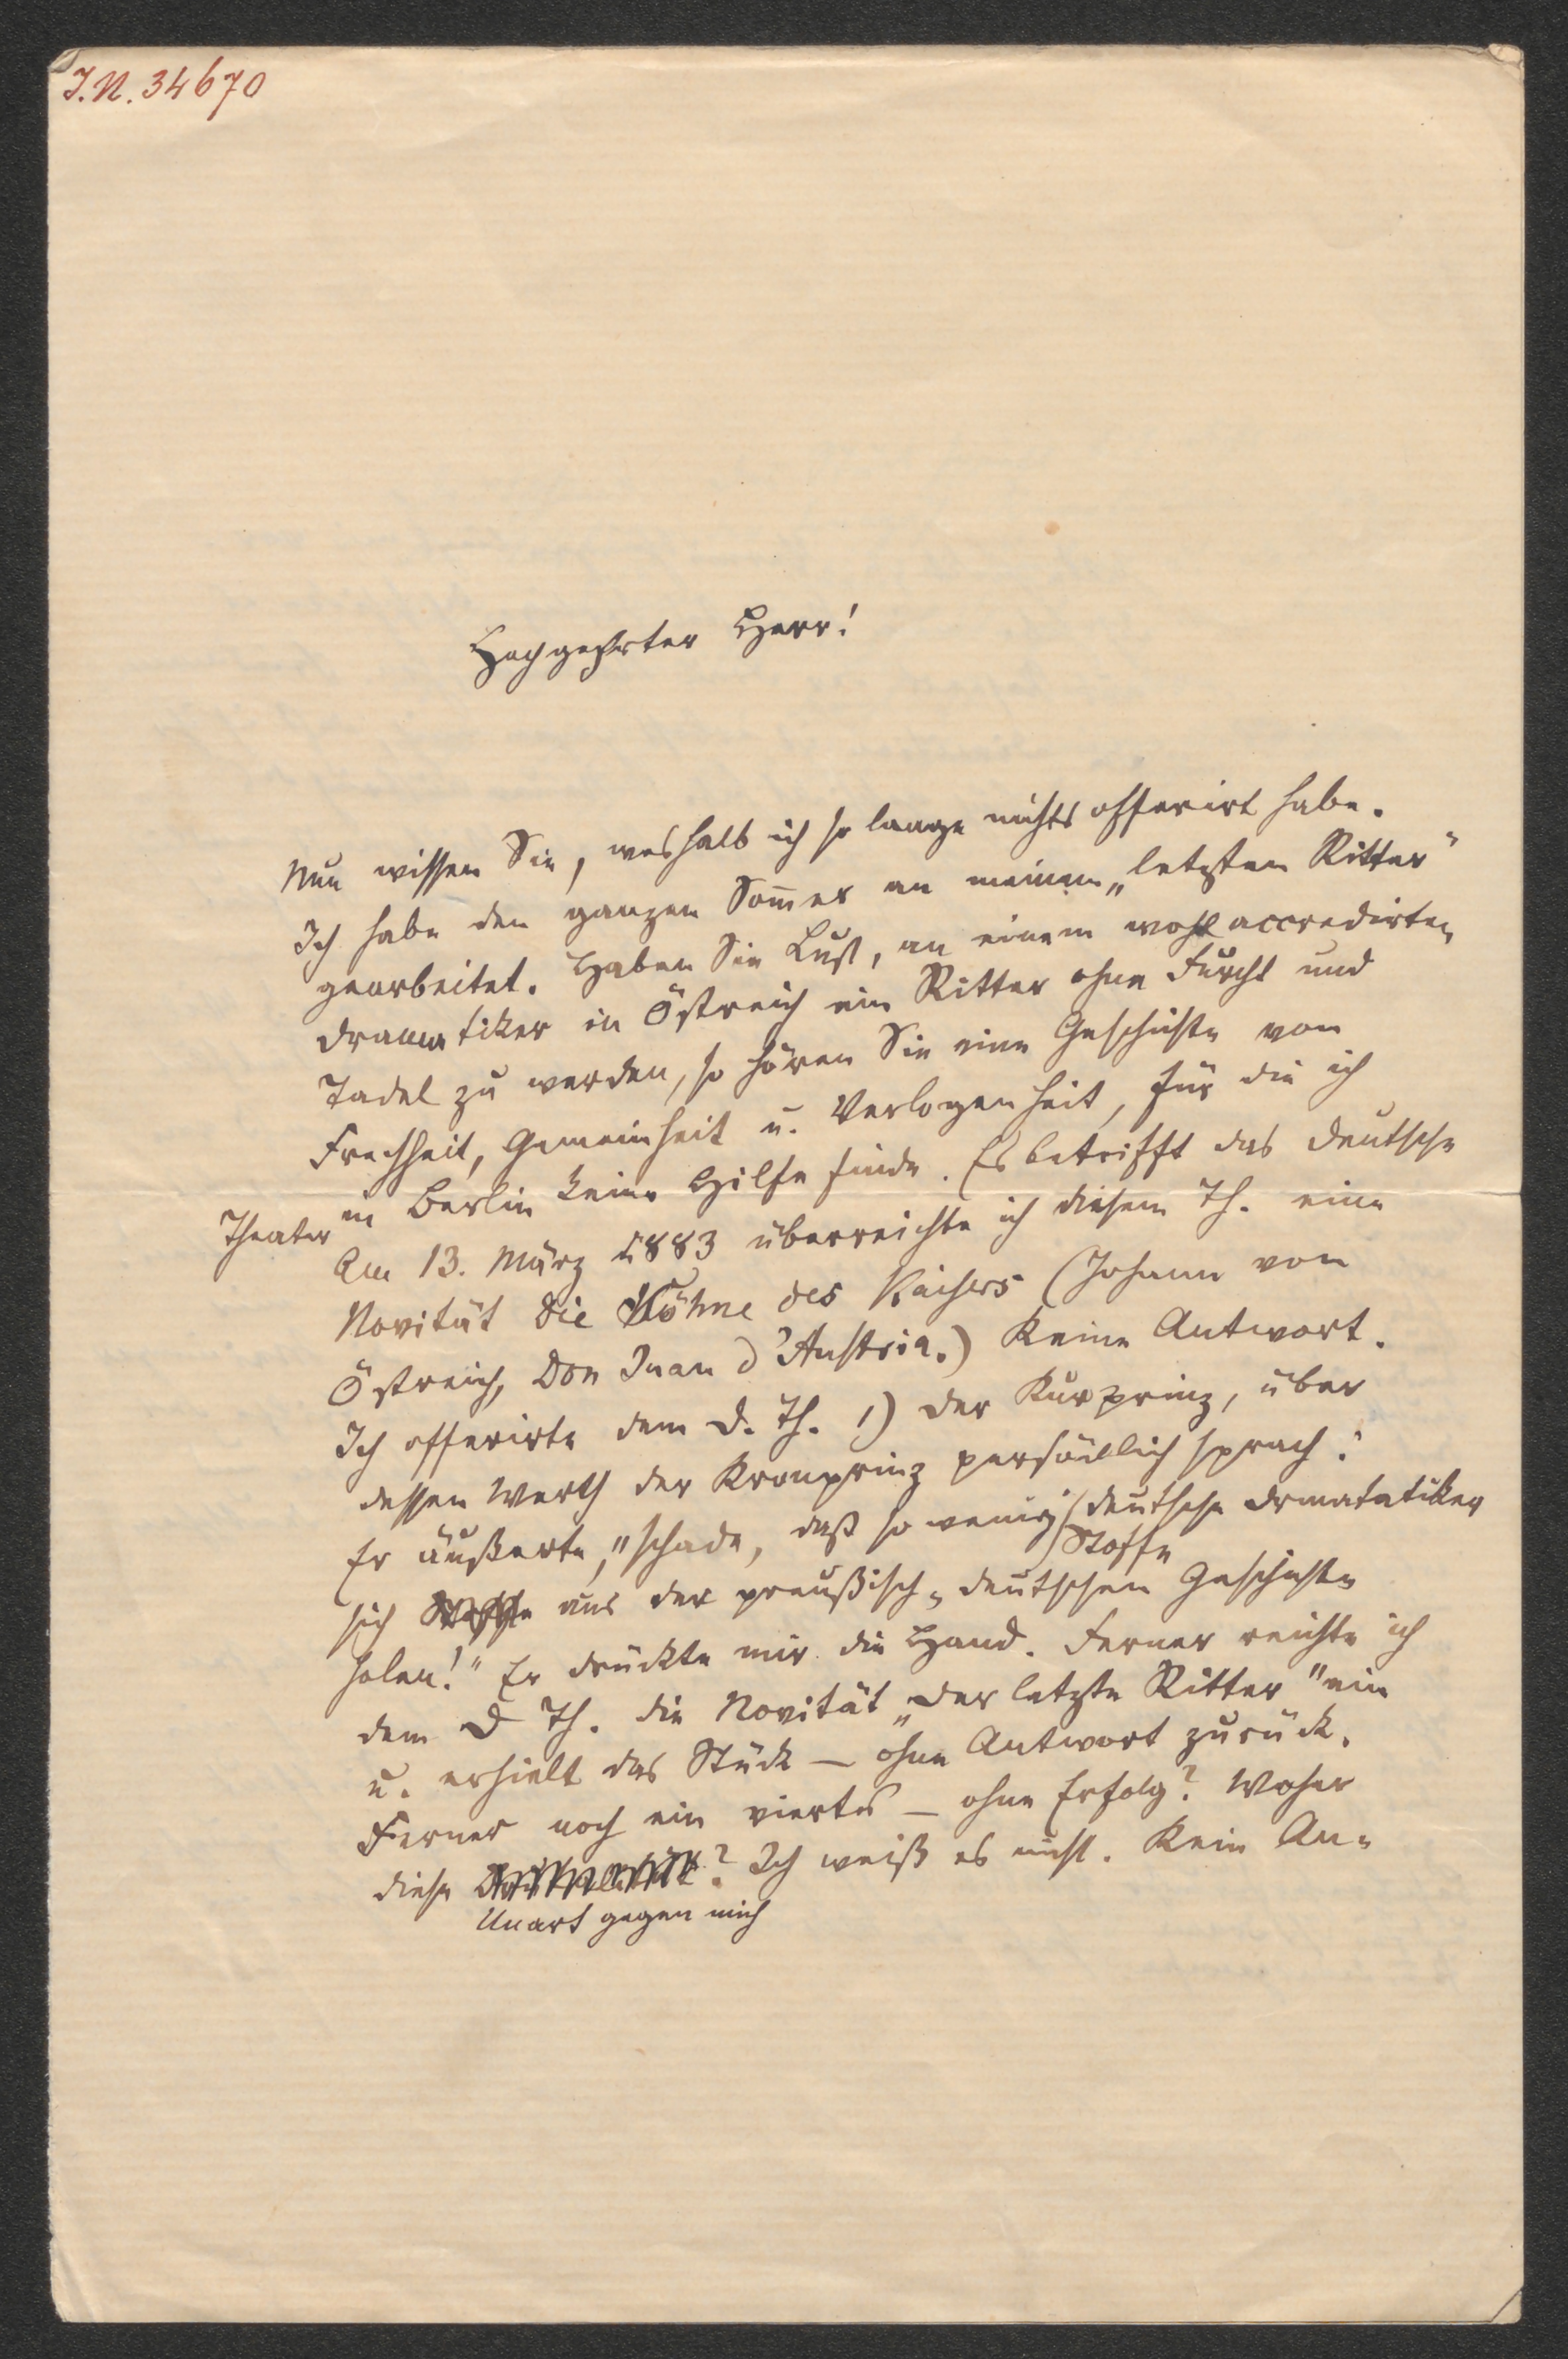 I.N. 34670
Hochgeehrter Herr!
Nun wissen Sie, weshalb ich so lange nichts offerirt habe.
Ich habe den ganzen Som̄er an meinem „letzten Ritter"
gearbeitet. Haben Sie Lust, an einem wohl accredirten
Dramatiker in Östreich ein Ritter ohne Furcht und
Tadel zu werden, so hören Sie eine Geschichte von
Frechheit, Gemeinheit u. Verlogenheit, für die ich
in Berlin keine Hilfe finde. Es betrifft das deutsche
Theater
Am 13. März 1883 überreichte ich diesem Th. eine
Novität Die Söhne des Kaisers (Johann von
Östreich, Don Juan d'Austria.) Keine Antwort.
Ich offerirte dem D. Th. 1) Der Kurprinz, über
dessen Werth der Kronprinz persönlich sprach:
Er äußerte, „schade, daß so wenig deutsche Drmatatiker
Stoffe
sich aus der preußisch-deutschen Geschichte
holen!" Er drückte mir die Hand. Ferner reichte ich
dem D Th. die Novität „Der letzte Ritter" ein
u. erhielt das Stück — ohne Antwort zurück.
Ferner noch ein viertes — ohne Erfolg? Woher
diese ? Ich weiß es nicht. Kein An-
Unart gegen mich